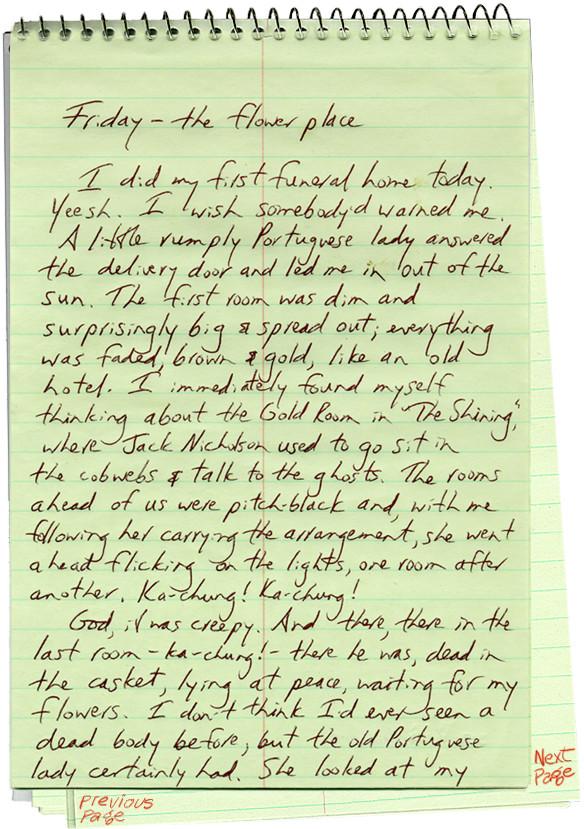 Friday - the flower place
I did my first funeral home today.
Yeesh. I wish somebody'd warned me.
A little rumply Portuguese lady answered
the delivery door and led me in out of the
sun. The first room was dim and
surprisingly big & spread out; everything
was faded, brown & gold, like an old
hotel. I immediately found myself
thinking about the Gold Room in "The Shining",
where Jack Nicholson used to go sit in
the cobwebs & talk to the ghosts. The rooms
ahead of us were pitch-black and, with me
following her carrying the arrangement, she went
ahead flicking on the lights, one room after
another. Ka-chung! Ka-chung!
God, it was creepy. And there, there in the
last room - ka-chung! - there he was, dead in
the casket, lying at peace, waiting for my
flowers. I don't think I'd ever seen a
dead body before, but the old Portuguese
lady certainly had. She looked at my
Next
Page
Previous
Page